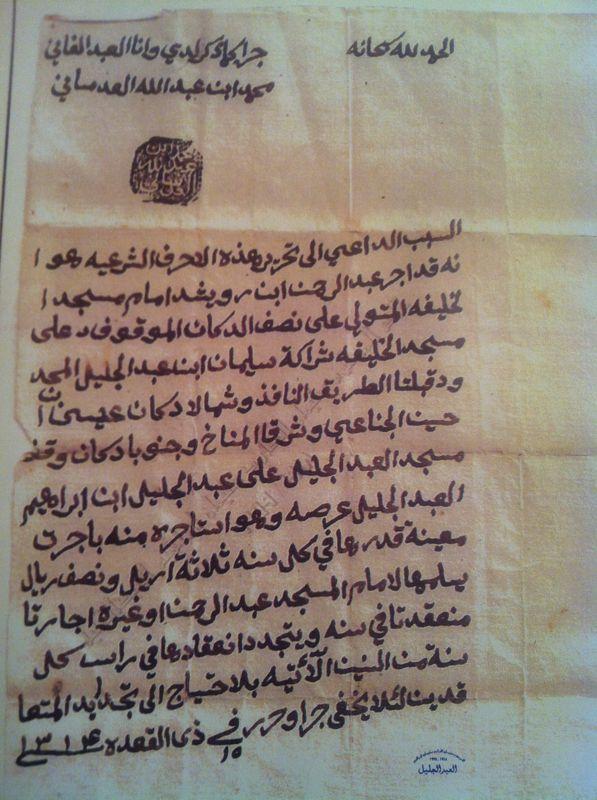 الحمد لله سبحانه
جرا كما ذكر لدي وانا العبد الفاني
محمد ابن عبد الله العدساني
السبب الداعي الى تحرير هذه الاحرف الشرعيه هو ا
نه قد اجر عبد الرحمن ابن رويشد امام مسجد ا
لخليفه المتولي على نصف الدكان الموقوف على
مسجد الخليفه شراكة سليمان ابن عبد الجليل المحد
ود قبلتا الطريق النافذ وشمالا دكان عيسى ابن
حسين الجناعي وشرقا المناخ وجنوبا دكان وقف
مسجد العبد الجليل على عبد الجليل ابن ابراهيم
العبد الجليل عرصه وهو استاجره منه باجرت
معينة قدرها في كل سنه ثلاثة اريل ونصف ريال
يسلمها لامام المسجد عبد الرحمن او غيره اجارتا
منعقدتا في سنه ويتجدد انعقادها في راس كل
سنة من السنين الآتيه بلا احتياج الى تجديد المتعا
قدين لئلا يخفى جرا وحرر في ١٥ ذى القعده ١٣١٤
العبد الجليل